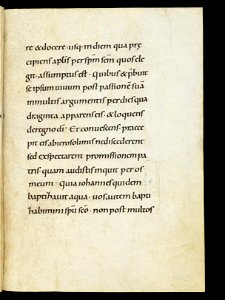 re & docere · usq; in diem qua præ
cipiens aplis per spm scm quos ele
git · assumptus est · Quibus & pbuit
se ipsum uiuum post passionē suā
in multis argumentis per dies qua
draginta apparens eis · & loquens
de regno di · Et conuescens · præce
pit eis ab ierosolimis ne discederent
sed exspectarent promissionem pa
tris · quam audistis inquit per os
meum · quia iohannes quidem
baptizauit aqua · uos autem bapti
zabimini spu sco · non post multos